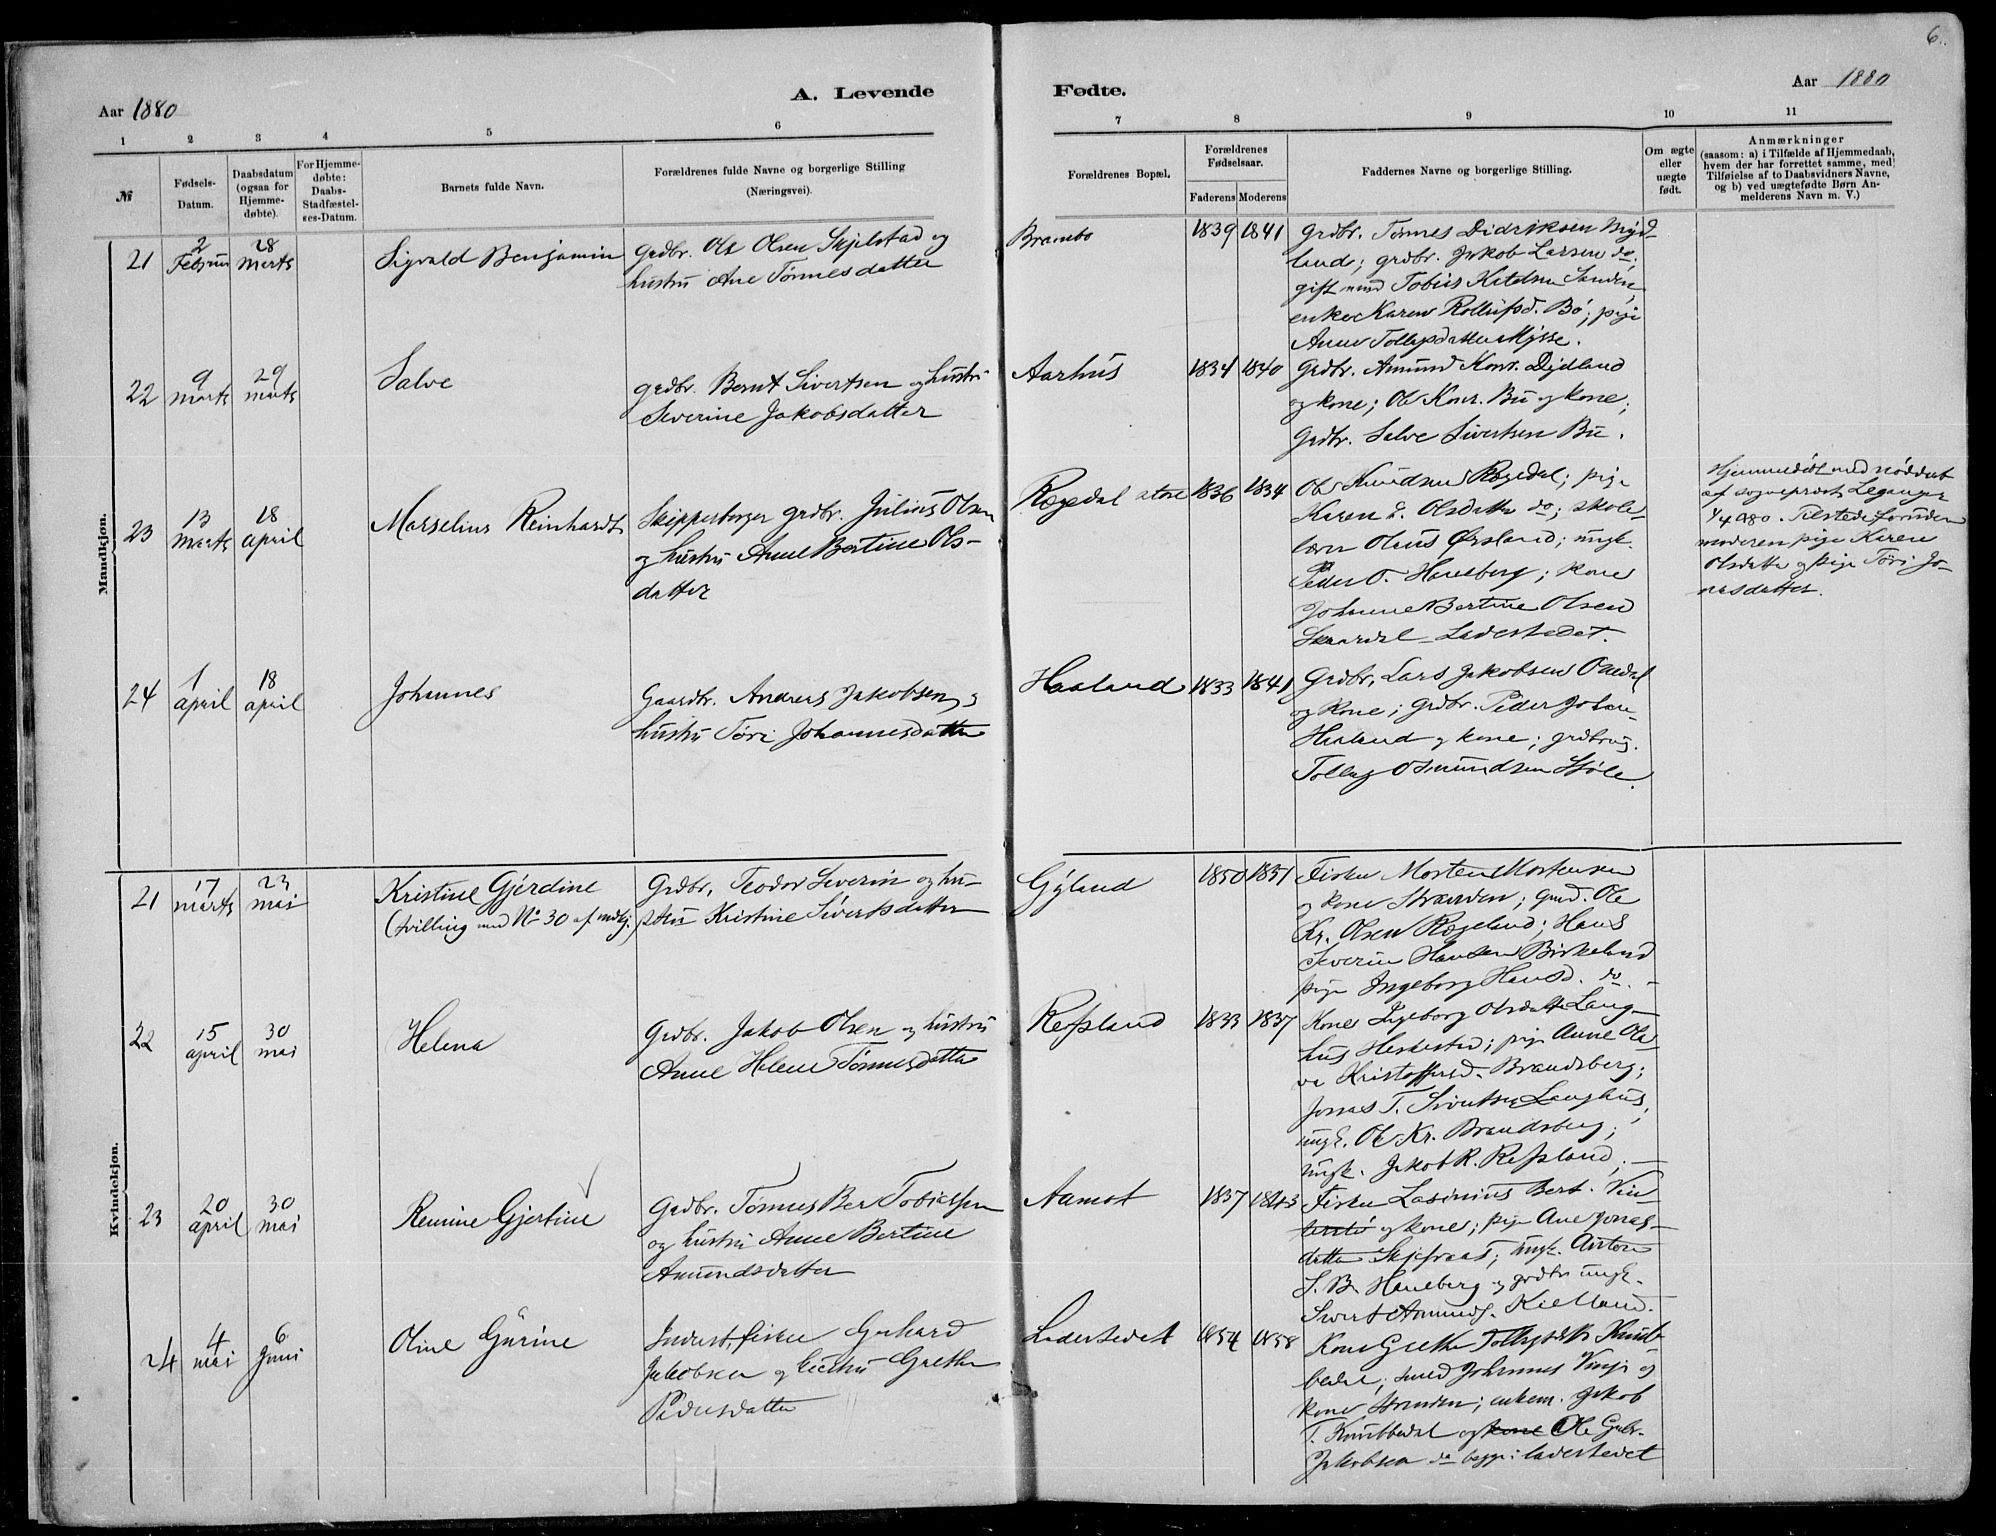 6.
Aar 1880
A. Levende
Fødte.
Aar 1880
1
2
3
4
5
6
7
8
9
10
11
№
Fødsels-
Datum.
Daabsdatum
(ogsaa for
Hjemme-
døbte).
For Hjemme-
døbte:
Daabs-
Stadfæstel-
ses-Datum.
Barnets fulde Navn.
Forældrenes fulde Navne og borgerlige Stilling
(Næringsvei).
Forældrenes Bopæl.
Forældrenes
Fødselsaar.
Faderens
Moderens
Faddernes Navne og borgerlige Stilling.
Om ægte
eller
uægte
født.
Anmærkninger
(saasom: a) i Tilfælde af Hjemmedaab,
hvem der har forrettet samme, med
Tilføielse af to Daabsvidners Navne,
og b) ved uægtefødte Børn An-
melderens Navn m. V.)
Mandkjøn.
21
2
Februar
28
Marts
Sigvald Benjamin
Grdbr. Ole Olsen Skjelstad og
hustru Ane Tønnesdatter
Brambo
1839
1841
Grdbr. Tønnes Didriksen
land; grdbr. Jakob Larsen do;
gift mand Tobias Sanden,
enke Karen Bø; pige
Anne Mysse.
22
9
marts
29
marts
Salve
grdbr. Bernt Sivertsen og hustru
Severine Jakobsdatter
Aarhus
1834
1840
Grdbr. Amund Konr. Dydland
og kone; Ole Konr. Bu og kone;
Grdbr. Salve Sivertsen Bu.
23
13
marts
18
april
Marselius Reinhardt
Skipperborger grdbr. Julius Olsen
og hustru Anne Bertine Ols-
datter
Rægedal
1836
1834
Ole Knudsen Rægedal; pige
Karen L. Olsdatter do; skole-
lærer Olaus Ørsland; ungk.
Peder O. Haneberg; kone
Johanne Bertine Olsen
Skaardal Ladestedet.
Hjemmedøbt med nøddaab
af sogneprest Leganger
1/4 080. Tilstede foruden
moderen pige Karen
Olsdatter og pige Tøri Jo-
nasdatter.
24
1
april
18
april
Johannes
Gaardbr. Andreas Jakobsen og
hustru Tøri Johannesdatter
Haaland
1833
1841
Grdbr. Lars Jakobsen Omdal
og kone; grdbr. Peder Johan-
Haaland og kone; grdbrug.
Tollag Osmundsen
Kvindekjøn.
21
17
marts
23
mai
Kristine Gjerdine
(tvilling med No 30 af mdkj.)
Grdbr. Teodor Severin og hu-
stru Kristine Sivertsdatter
Gyland
1850
1851
Fisker Morten Mortensen
og kone Stranden; gmd. Ole
Kr. Olsen Rægeland; Hans
Severin Hansen Birkeland
pige Ingeborg Hansd. do. -
22
15
april
30
mai
Helena
Grdbr. Jakob Olsen og hustru
Anne Helene Tønnesdatter
Refsland
1833
1837
Kone Ingeborg Olsdatter Lang-
hus Heskestad; pige Anne Ola-
va Kristoffersd. Brandsberg;
Jonas T. Sivertsen Langhus;
ungk. Ole Kr. Brandsberg;
ungk. Jakob R. Refsland; -
23
20
april
30
mai
Remine Gjertine
Grdbr. Tønnes Ber Tobiassen
og hustru Anne Bertine
Amundsdatter
Aamot
1837
1843
Fisker Lasinius Bert.
og kone; pige Ane Jonas-
datter; ungk. Anton
S. B. Haneberg og grdbr ungk.
Sivert Amunds. Kielland.
24
4
mai
6
Juni
Oline Gurine
Indust. fisker Gerhard
Jakobsen og hustru Grethe
Pedersdatter
Ladestedet
1854
1858
Kone Grethe
; smed Johannes og
kone Stranden; enkem. Jakob
T. Knubbedal og kone Ole Gabr.
Jakobsen do begge i ladestedet